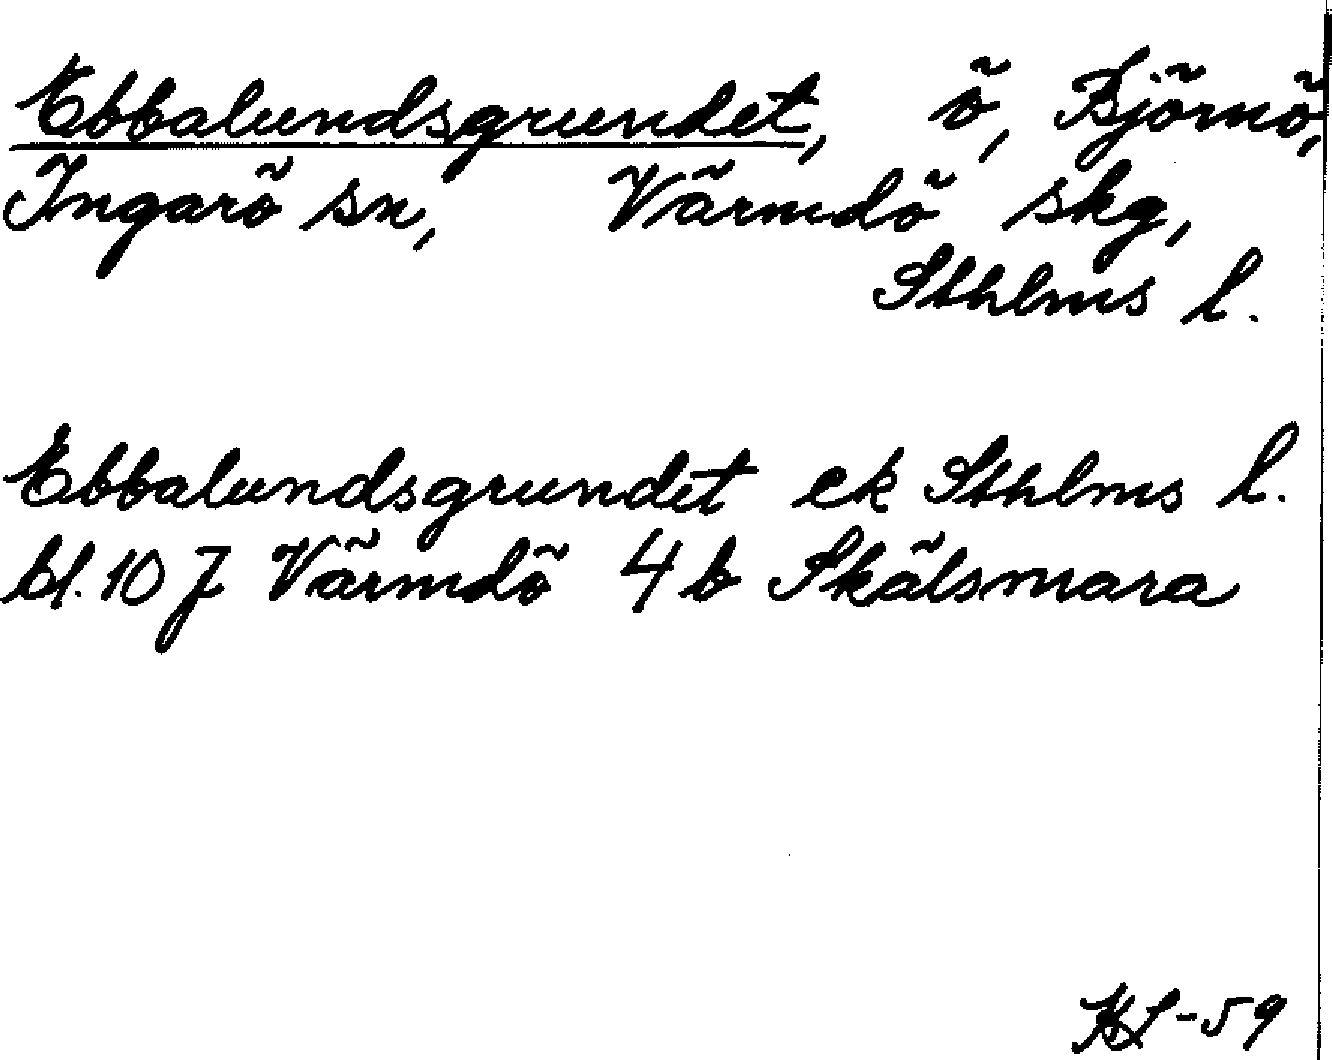 Ebbalundsgrundet, ö, Björnö,
Ingarö sn, Värmdö skg,
Sthlms l.
Ebbalundsgrundet ek Sthlms l.
bl. 107 Värmdö 4 b Skälsmara
KL-59